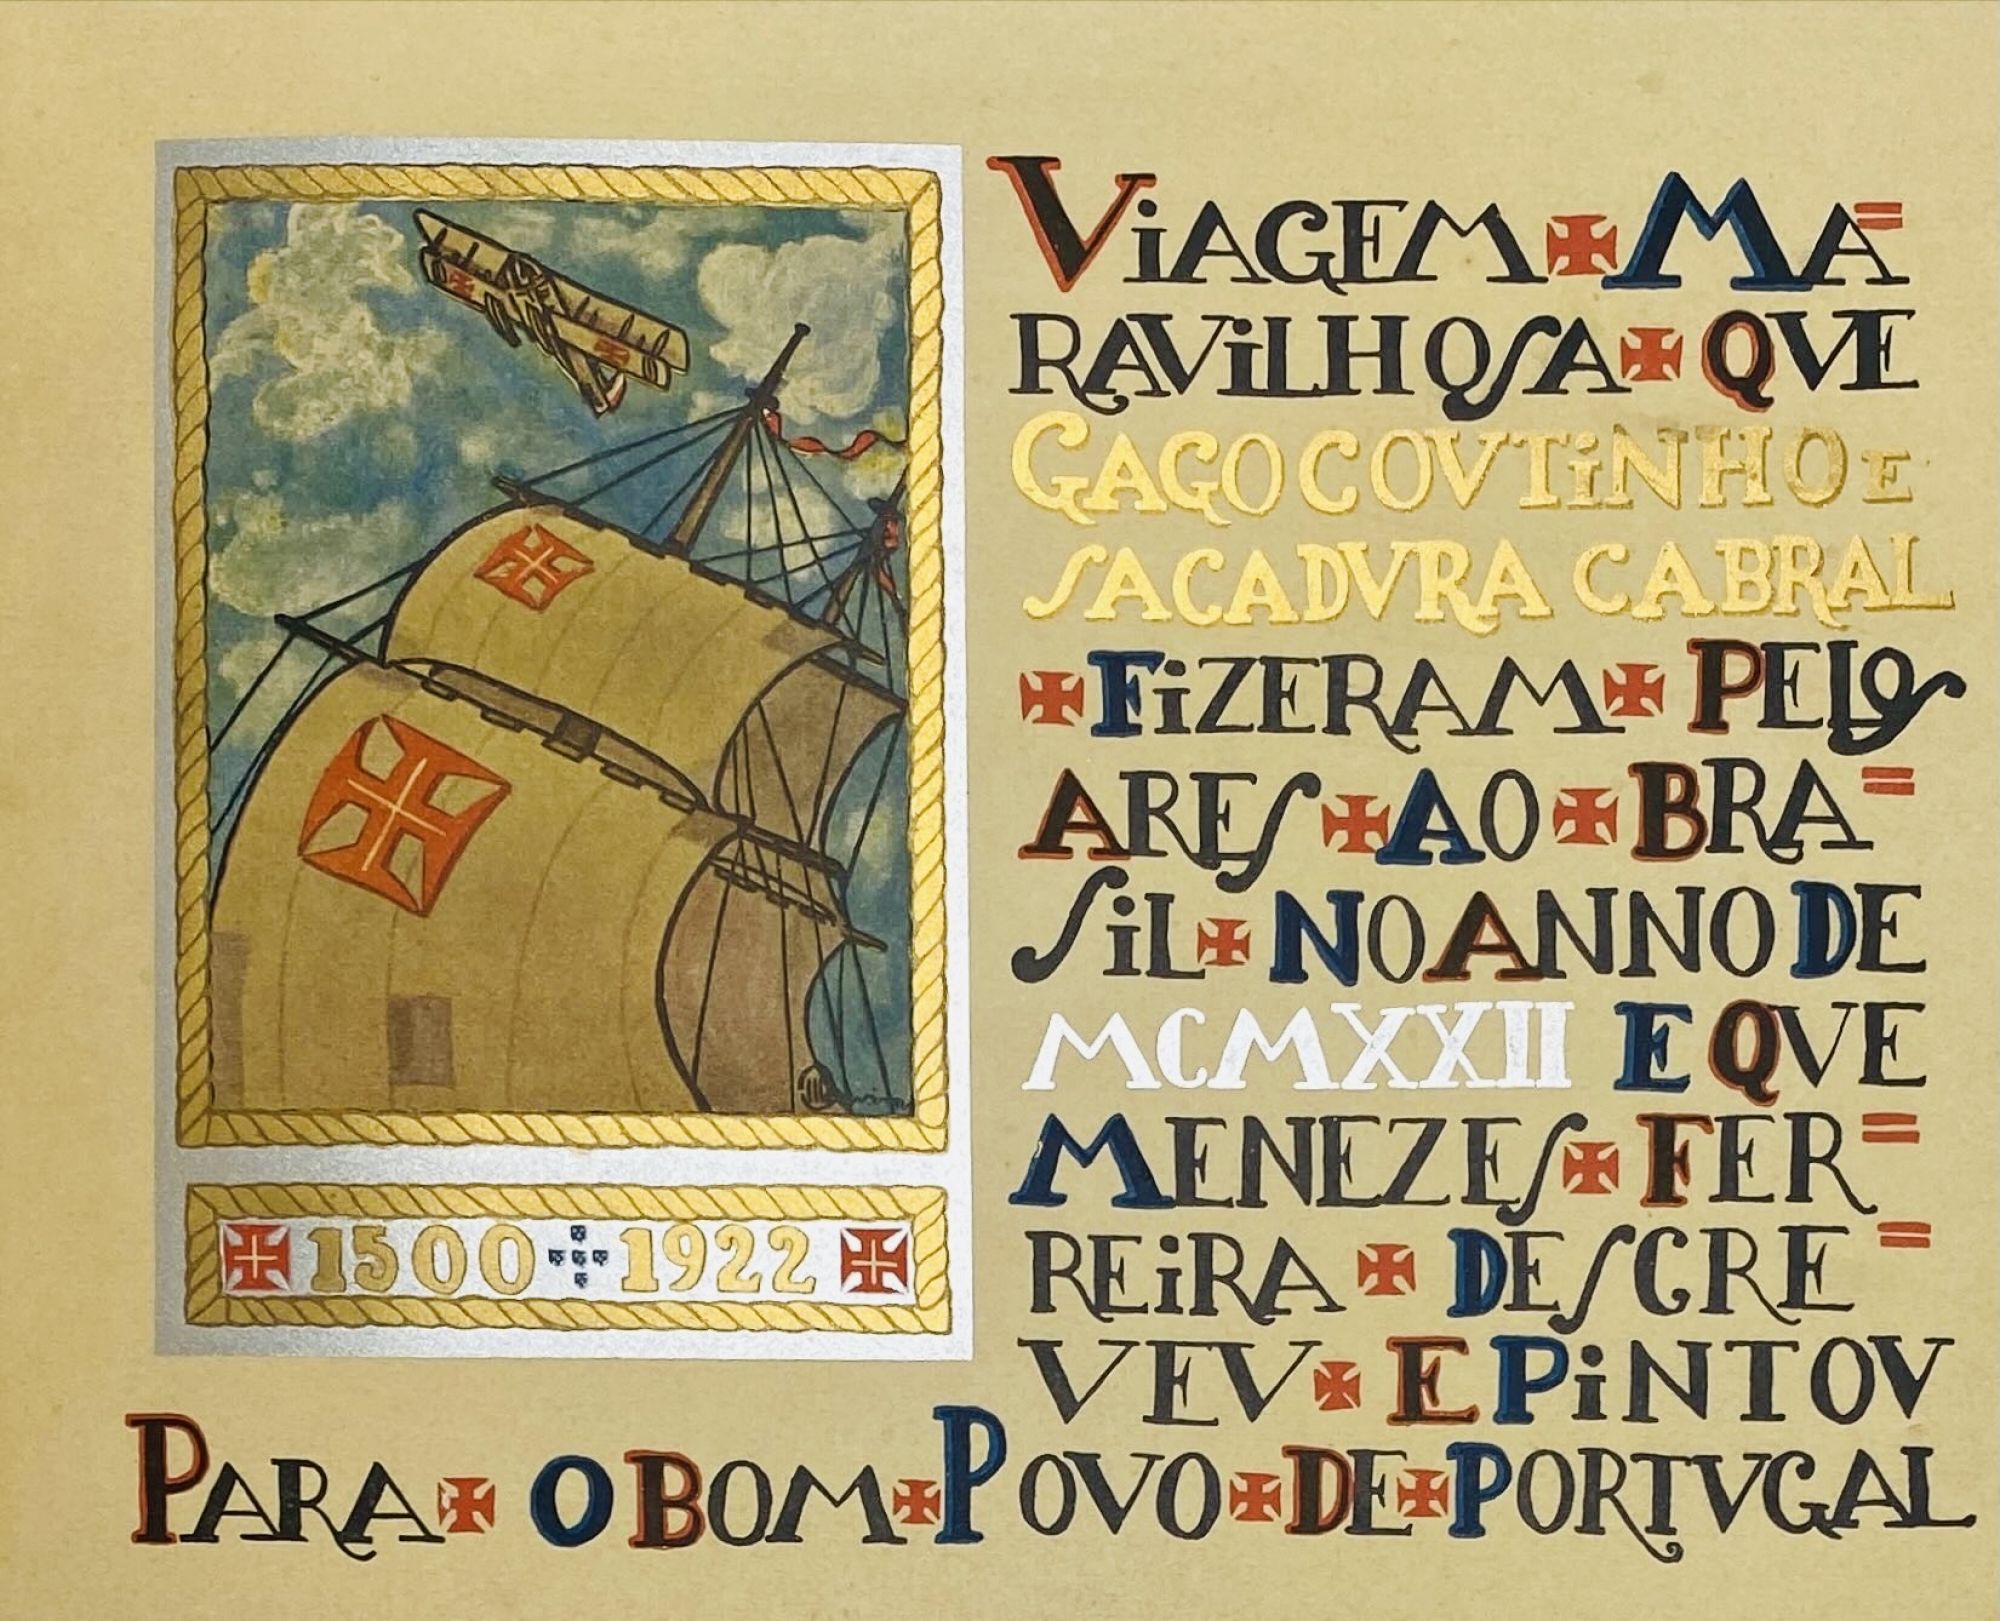 VIAGEM ✠ MA=
RAVILHOSA ✠ QVE
GAGO COVTINHO E
SACADVRA CABRAL
✠ FIZERAM ✠ PELOS
ARES ✠ AO ✠ BRA=
SIL ✠ NO ANNO DE
MCMXXII E QVE
MENEZES ✠ FER=
REIRA ✠ DESCRE=
VEV ✠ E PINTOV
PARA ✠ O BOM ✠ POVO ✠ DE ✠ PORTVGAL
1500 1922